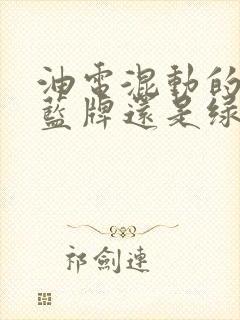 油電混動的
藍牌還是綠
祁劍連